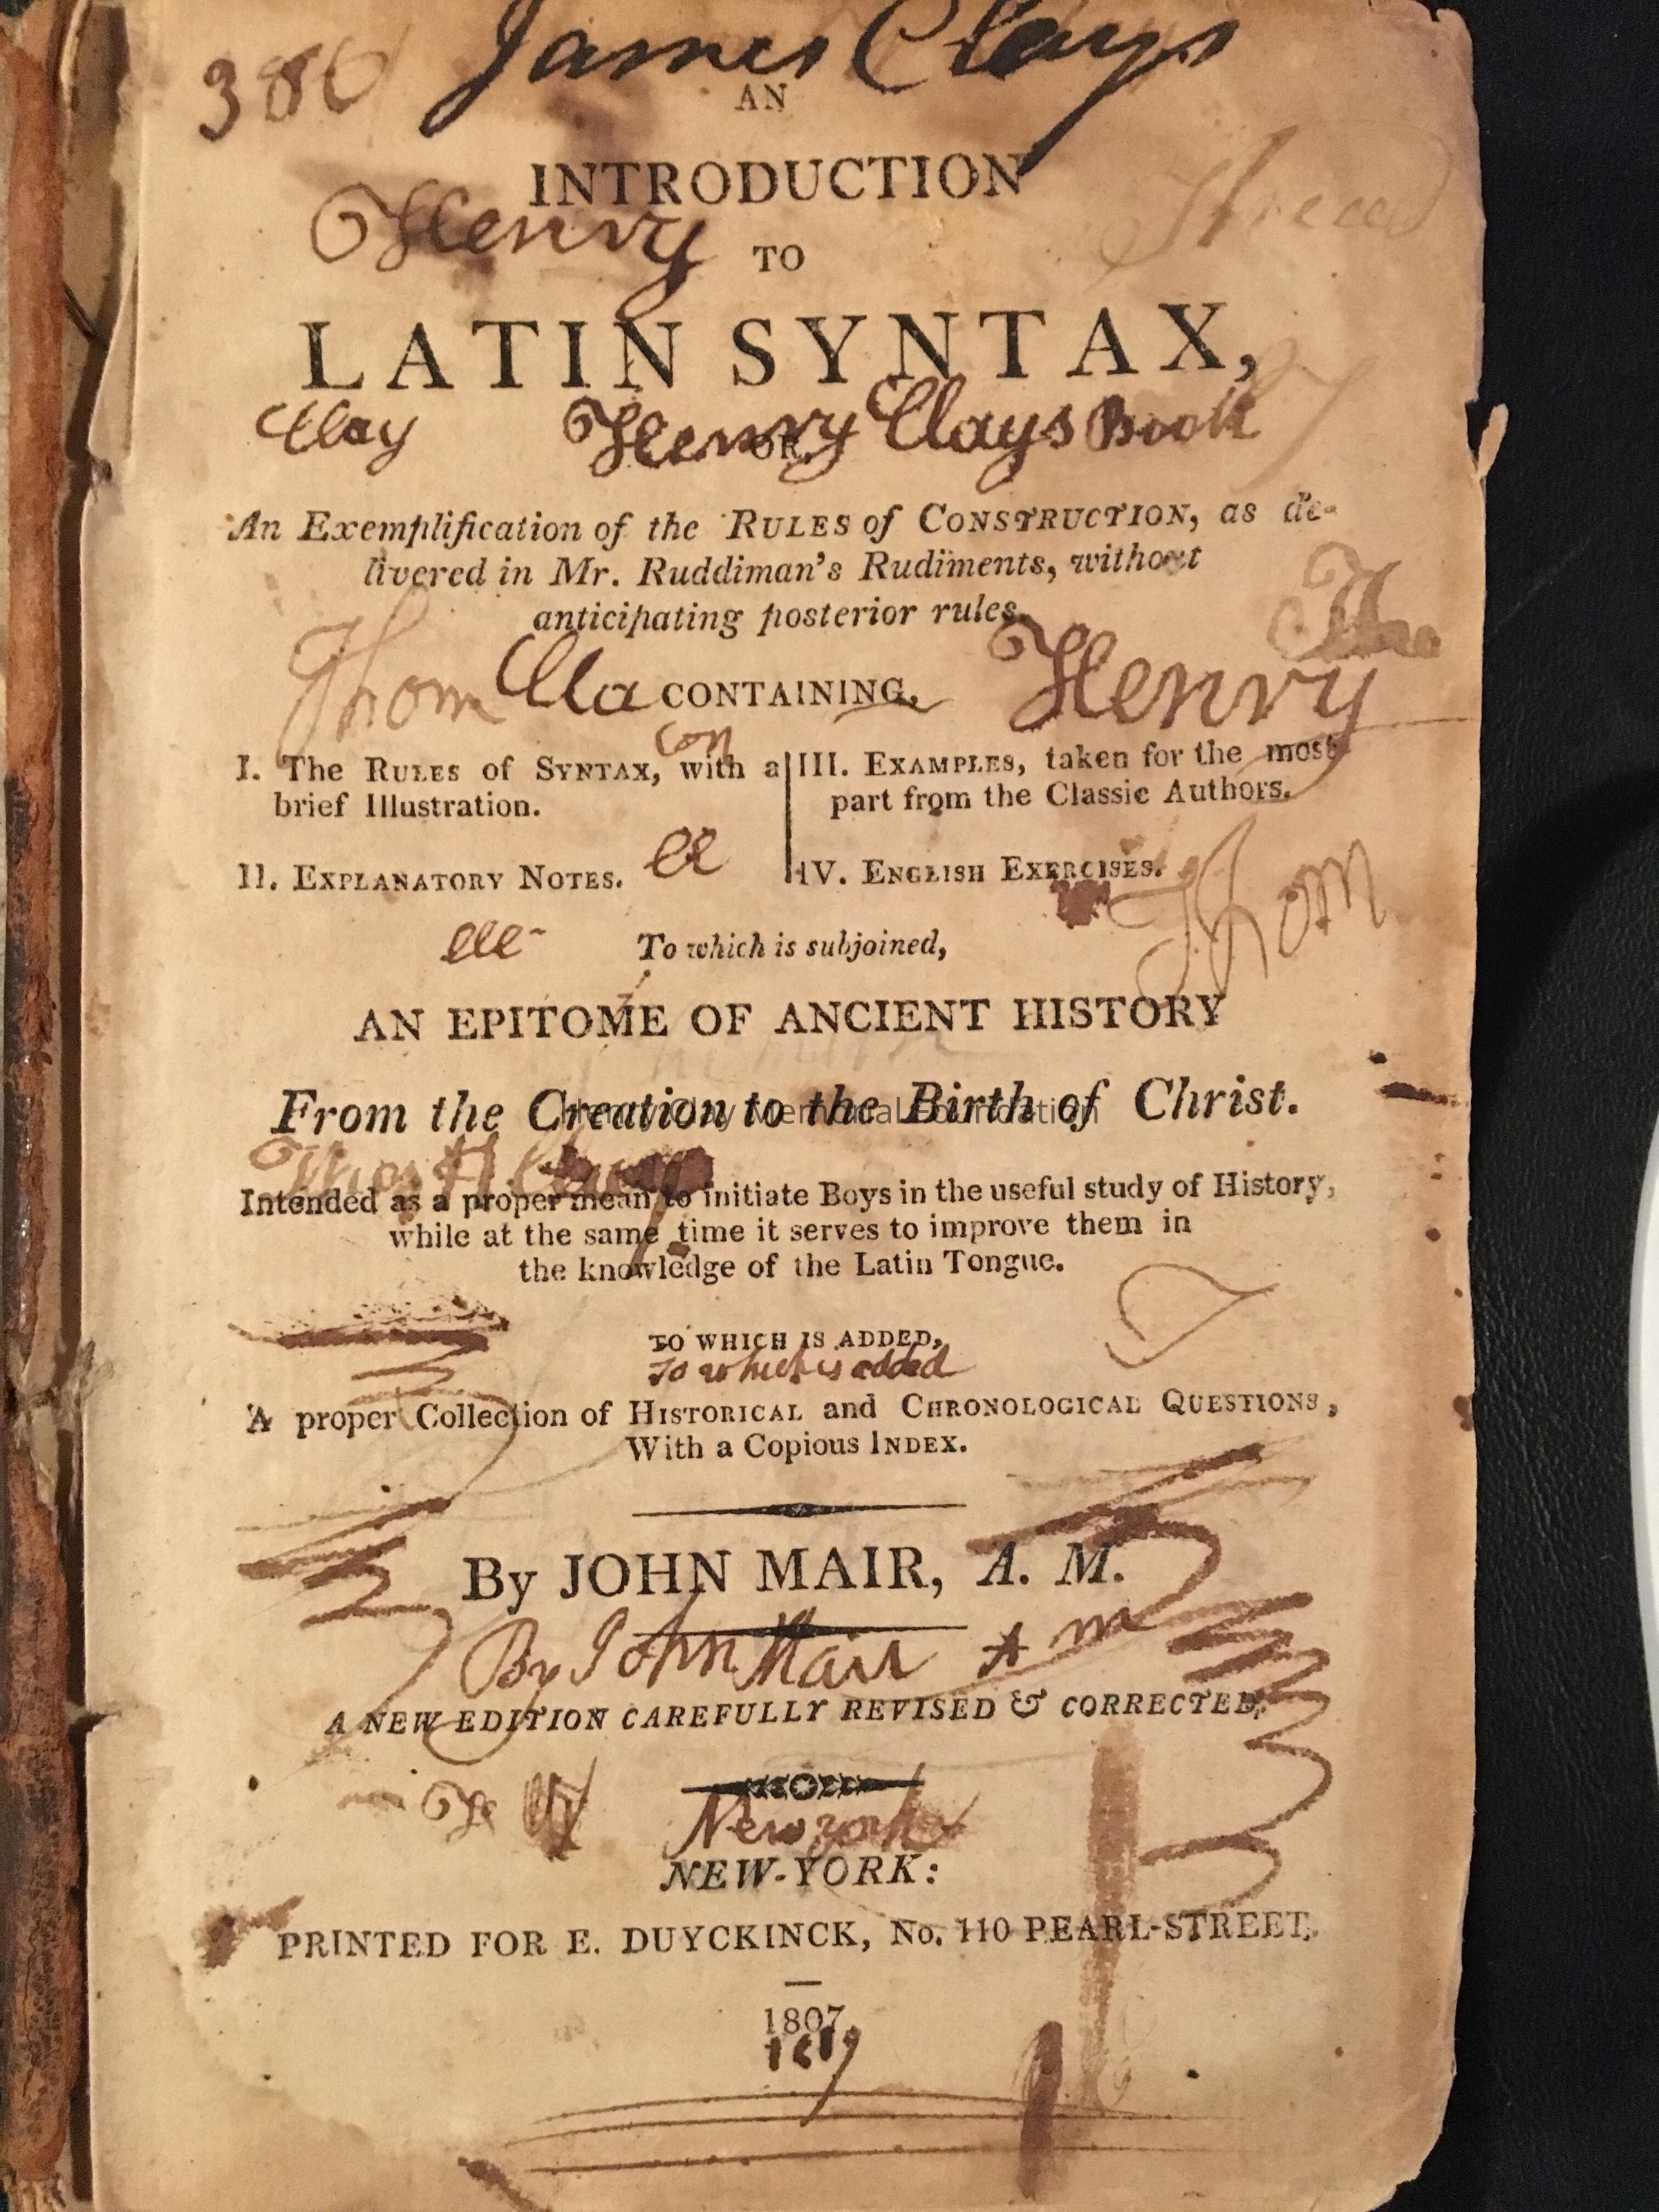 James Clays
386
AN
INTRODUCTION
Henry
TO
LATIN SYNTAX,
Clay Henry Clays Book
OR,
An Exemplification of the RULES of CONSTRUCTION, as de-
livered in Mr. Ruddiman's Rudiments, without
anticipating posterior rules.
Thom Cla CONTAINING, Henry
Con
I. The RULES of SYNTAX, with a
brief Illustration.
II. EXPLANATORY NOTES.
III. EXAMPLES, taken for the most
part from the Classic Authors.
IV. ENGLISH EXERCISES.
Thom
To which is subjoined,
AN EPITOME OF ANCIENT HISTORY
From the Creation to the Birth of Christ.
Henry Clay Memorial Foundation
Thos H Clay
Intended as a proper mean to initiate Boys in the useful study of History,
while at the same time it serves to improve them in
the knowledge of the Latin Tongue.
TO WHICH IS ADDED,
To which is added
A proper Collection of HISTORICAL and CHRONOLOGICAL QUESTIONS,
With a Copious INDEX.
By JOHN MAIR, A. M.
By John Mair A m
A NEW EDITION CAREFULLY REVISED & CORRECTED,
New york
NEW-YORK:
PRINTED FOR E. DUYCKINCK, No. 110 PEARL-STREET.
1807